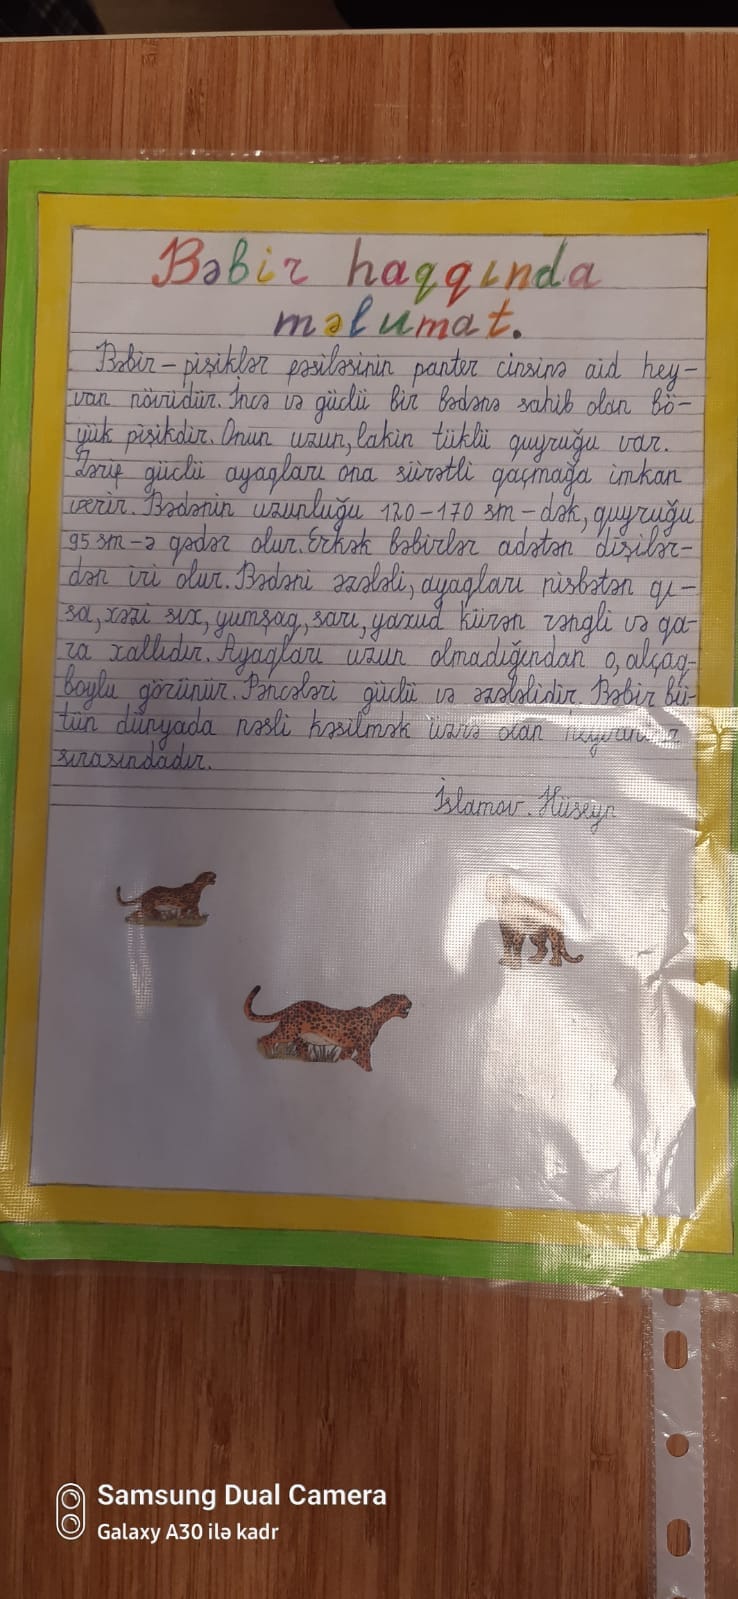 Bəbir haqqında
məlumat.
Bəbir – pişiklər fəsiləsinin panter cinsinə aid hey-
van növüdür. İncə və güclü bir bədənə sahib olan bö-
yük pişikdir. Onun uzun, lakin tüklü quyruğu var.
Zərif güclü ayaqları ona sürətli qaçmağa imkan
verir. Bədənin uzunluğu 120-170 sm-dək, quyruğu
95 sm-ə qədər olur. Erkək bəbirlər adətən dişilər-
dən iri olur. Bədəni əzələli, ayaqları nisbətən qı-
sa, xəzi sıx, yumşaq, sarı, yaxud kürən rəngli və qa-
ra xallıdır. Ayaqları uzun olmadığından o, alçaq-
boylu görünür. Pəncələri güclü və əzələlidir. Bəbir bü-
tün dünyada nəsli kəsilmək üzrə olan
sırasındadır.
İslamov. Hüseyn
Samsung Dual Camera
Galaxy A30 ilə kadr